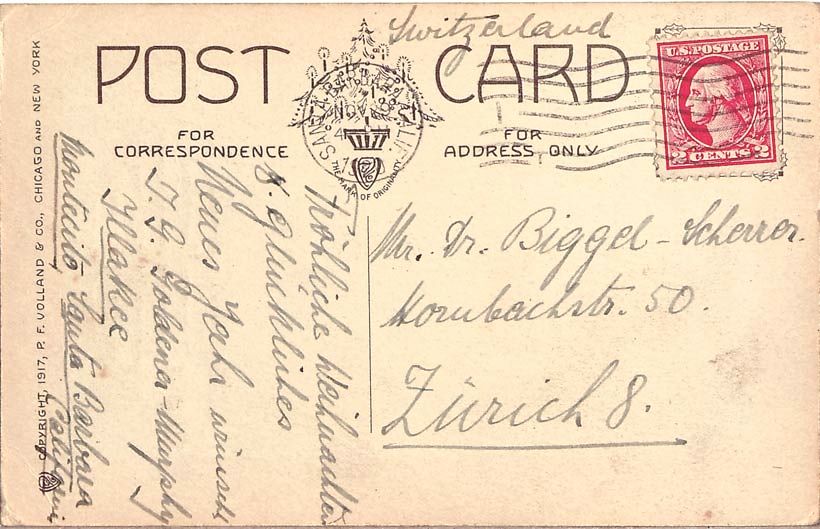 Switzerland
POST CARD
U.S. POSTAGE
2 CENTS 2
SANTA BARBARA CALIF.
NOV
4
THE MARK OF ORIGINALITY
FOR
CORRESPONDENCE
FOR
ADDRESS ONLY
Mr. Dr. Biggel-Scherrer.
Hornbachstr. 50.
Zürich 8.
Fröhliche Weihnachten
& glückliches
Neues Jahr wünscht
T. G. Goldena-Murphy
Montecito, Santa Barbara
COPYRIGHT, 1917, P. F. VOLLAND & CO., CHICAGO AND NEW YORK